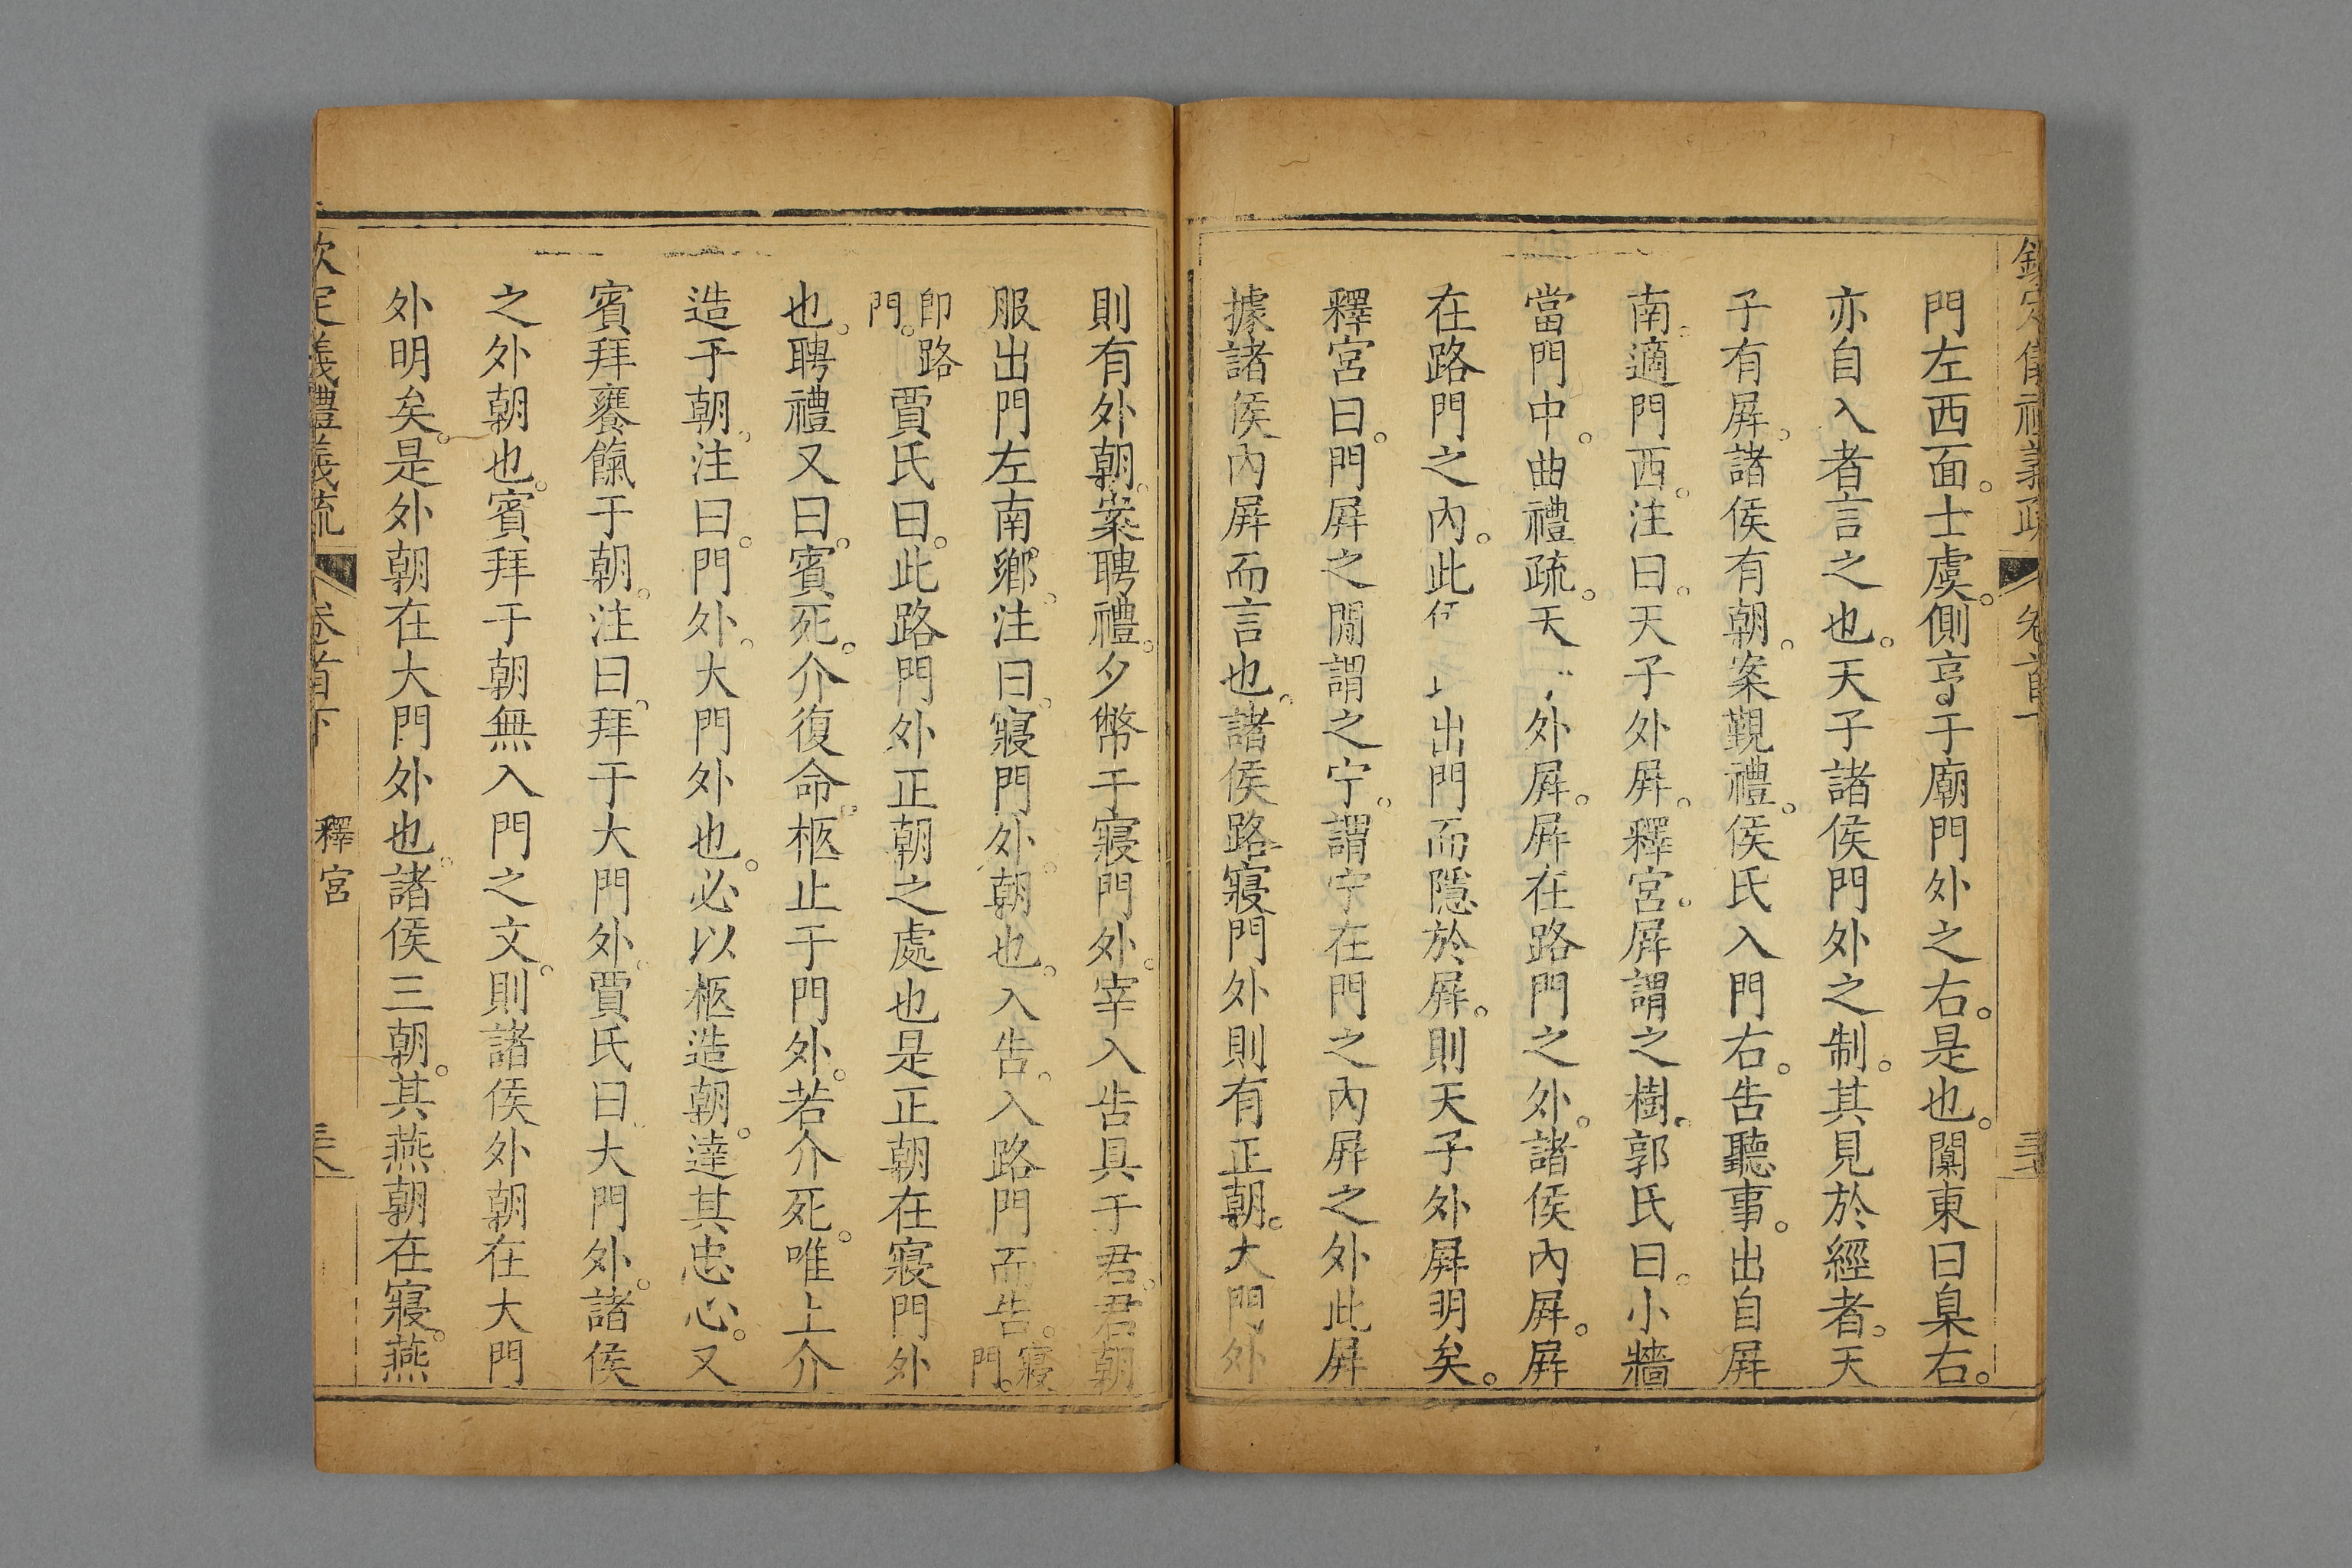 門左西面。士虞。側亨于廟門外之右。是也。闑東曰臬右。
亦自入者言之也。天子諸侯門外之制。其見於經者。天
子有屏。諸侯有朝。案覲禮。侯氏入門右。告聽事。出自屏
南。適門西。注曰。天子外屏。釋宮。屏謂之樹。郭氏曰。小牆
當門中。曲禮疏。天 外屏。屏在路門之外。諸侯內屏。屏
在路門之內。此 出門而隱於屏。則天子外屏明矣。
釋宮曰。門屏之閒謂之宁。謂宁在門之內屏之外此屏
據諸侯內屏而言也。諸侯路寢門外則有正朝。大門外
則有外朝。案聘禮。夕幣于寢門外。宰入告具于君。君朝
服出門左南鄉。注曰。寢門外。朝也。入告。入路門而告。寢門。
即路門。賈氏曰。此路門外正朝之處也是正朝在寢門外
也。聘禮又曰。賓死。介復命。柩止于門外。若介死。唯上介
造于朝。注曰。門外。大門外也。必以柩造朝。達其忠心。又
賓拜饔餼于朝。注曰。拜于大門外。賈氏曰。大門外。諸侯
之外朝也。賓拜于朝無入門之文。則諸侯外朝在大門
外明矣。是外朝在大門外也。諸侯三朝。其燕朝在寢。燕
欽定義禮義疏 卷首下 釋宮